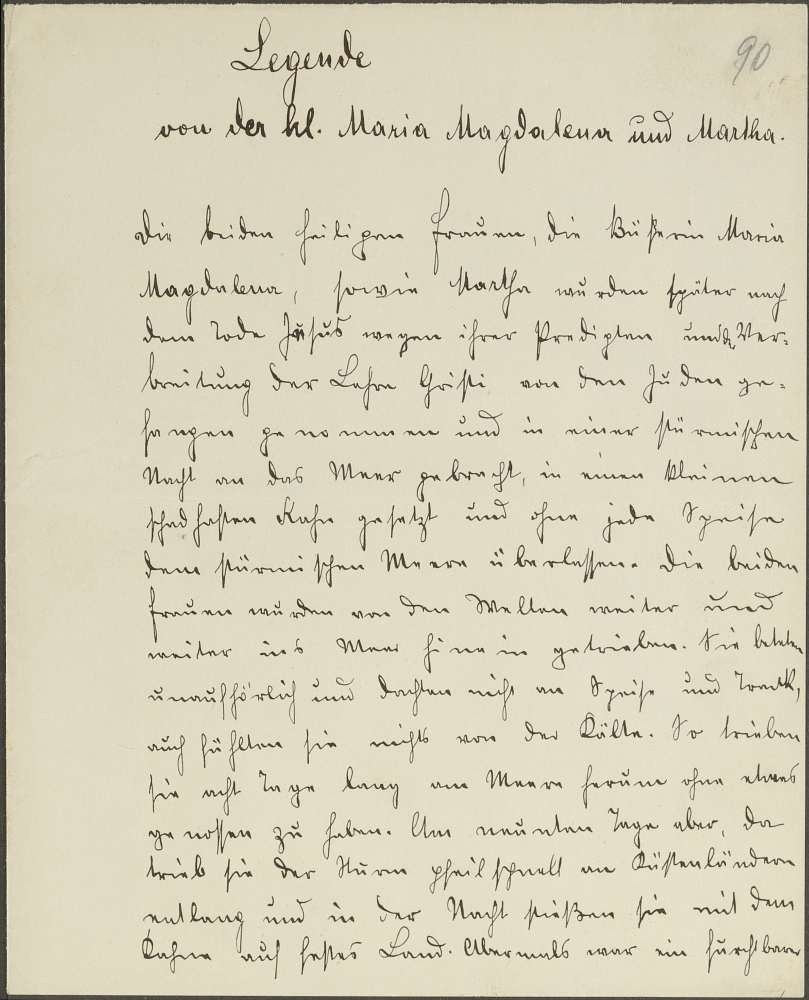 Legende
90
von der hl. Maria Magdalena und Martha.
Die beiden heiligen Frauen, die Büßerin Maria
Magdalena, sowie Martha wurden später nach
dem Tode Jesus wegen ihrer Predigten und Ver-
breitung der Lehre Christi von den Juden ge-
fangen genommen und in einer stürmischen
Nacht an das Meer gebracht, in einen kleinen
schadhaften Kahn gesetzt und ohne jede Speise
dem stürmischen Meere überlassen. Die beiden
Frauen wurden von den Wellen weiter und
weiter ins Meer hinein getrieben. Sie beteten
unaufhörlich und dachten nicht an Speise und Trank,
auch fühlten sie nichts von der Kälte. So trieben
sie acht Tage lang am Meere herum ohne etwas
genossen zu haben. Am neunten Tage aber, da
trieb sie der Sturm pfeilschnell an Küstenländern
entlang und in der Nacht stießen sie mit dem
Kahne auf festes Land. Abermals war ein furchtbarer